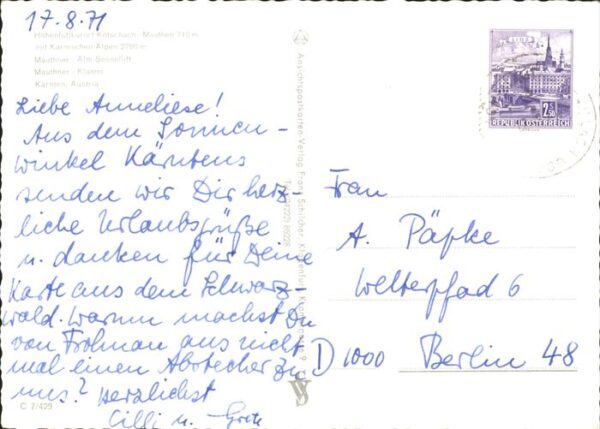 17.8.71
Höhenluftkurort Kötschach-Mauthen 710 m
mit Karnischen Alpen 2780 m
Mauthner-Alm Sessellift
Mauthner-Klamm
Kärnten, Austria
Liebe Anneliese!
Aus dem Sonnen-
winkel Kärntens
senden wir Dir herz-
liche Urlaubsgrüße
u. danken für Deine
Karte aus dem Schwarz-
wald. Warum machst Du
von Frohnau aus nicht
mal einen Abstecher zu
uns? Herzlichst
Cilli u. Grete
C 7/429
Ansichtspostkarten-Verlag Franz Schilcher, Klagenfurt
LINZ
2.50
REPUBLIK ÖSTERREICH
Frau
A. Päpke
Welterpfad 6
D 1000 Berlin 48